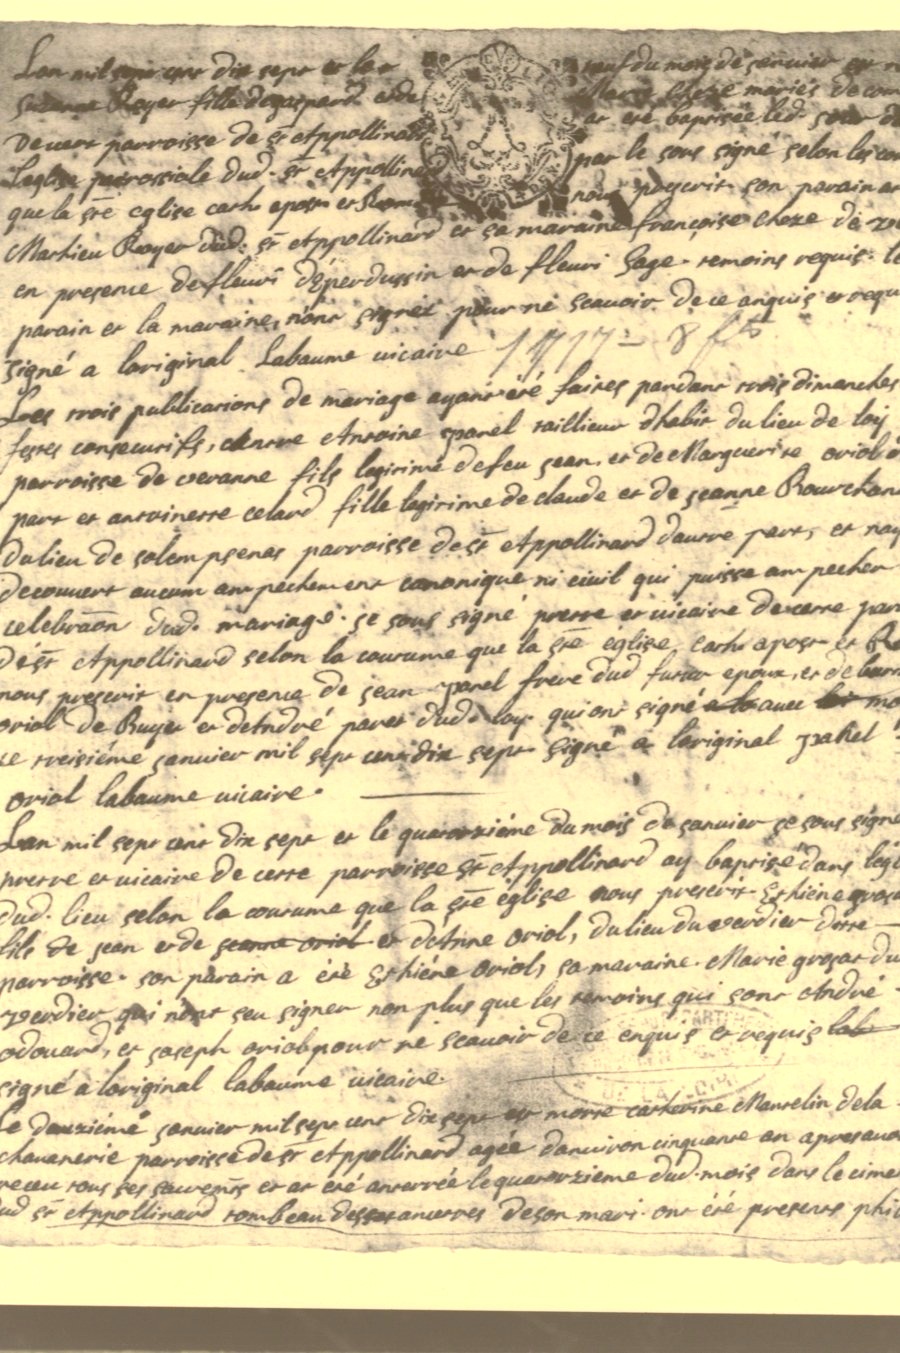 Lan mil sept cent dix sept et le neuf du mois de janvier est n
suzanne Royer fille de gaspard et de Marie Choze mariés de com
De vert parroisse de st Appollinard at eté baptisée led. jour d
Leglise parrossiale dud. st Appollinard par le sous signé selon les cou
que la ste eglise cath. apost. et Rom. nous prescrit son parain a
Mathieu Royer dud. st Appollinard et sa maraine françoise Choze de v
en presence de fleuri déperdussin et de fleuri Sage temoins requis. le
parain et la maraine, n'ont signéz pour ne scavoir de ce anquis et requ
signé a loriginal Labaume vicaire 1717 = 8 fts
Les trois publications de mariage ayant été faites pandant trois dimanches
festes consecutifs, dantre Antoine panel taillieur dhabit du lieu de loij
parroisse de veranne fils legitime de feu jean, et de Marguerite oriol d
part et antoinette celard fille legitime de claude et de jeanne Bourchan
du lieu de solempsenas parroisse de st Appollinard dautre part, et nay
decouvert aucum ampechement canonique ni civil qui puisse ampecher
celebraon dud. mariage. je sous signé pretre et vicaire de cette par
de st Appollinard selon la coutume que la ste eglise cath. apost. et Ro
nous prescrit en presence de jean panel frere dud futur epoux, et de
oriol de Ruyer et dAndré paret dud. loy qui ont signé avec mo
ce treisiéme janvier mil sept cent dix sept signé a loriginal panel
oriol labaume vicaire.
Lan mil sept cent dix sept et le quatorziéme du mois de janvier je sous signé
pretre et vicaire de cette parroisse st Appollinard ay baptisé dans legl
dud. lieu selon la coutume que la ste église nous prescrit Ethiéne grosa
fils de jean et de jeanne oriol et dAnne oriol, du lieu du verdier dette
parroisse. son parain a été Ethiéne oriol, sa maraine Marie grosat du
verdier qui n'ont seu signer non plus que les temoins qui sont André
odouard, et joseph oriol pour ne scavoir de ce enquis et requis lab
signé a loriginal labaume vicaire.
Le deuxiéme janvier mil sept cent dix sept est morte catherine Mantelin de la
chavanerie parroisse de st Appollinard agée danviron cinquante an apres avoi
receu tous ses sacrents et at été anterrée le quatorzieme dud. mois dans le cime
dud st Appollinard tombeau des ancetres de son mari. ont été presents phi